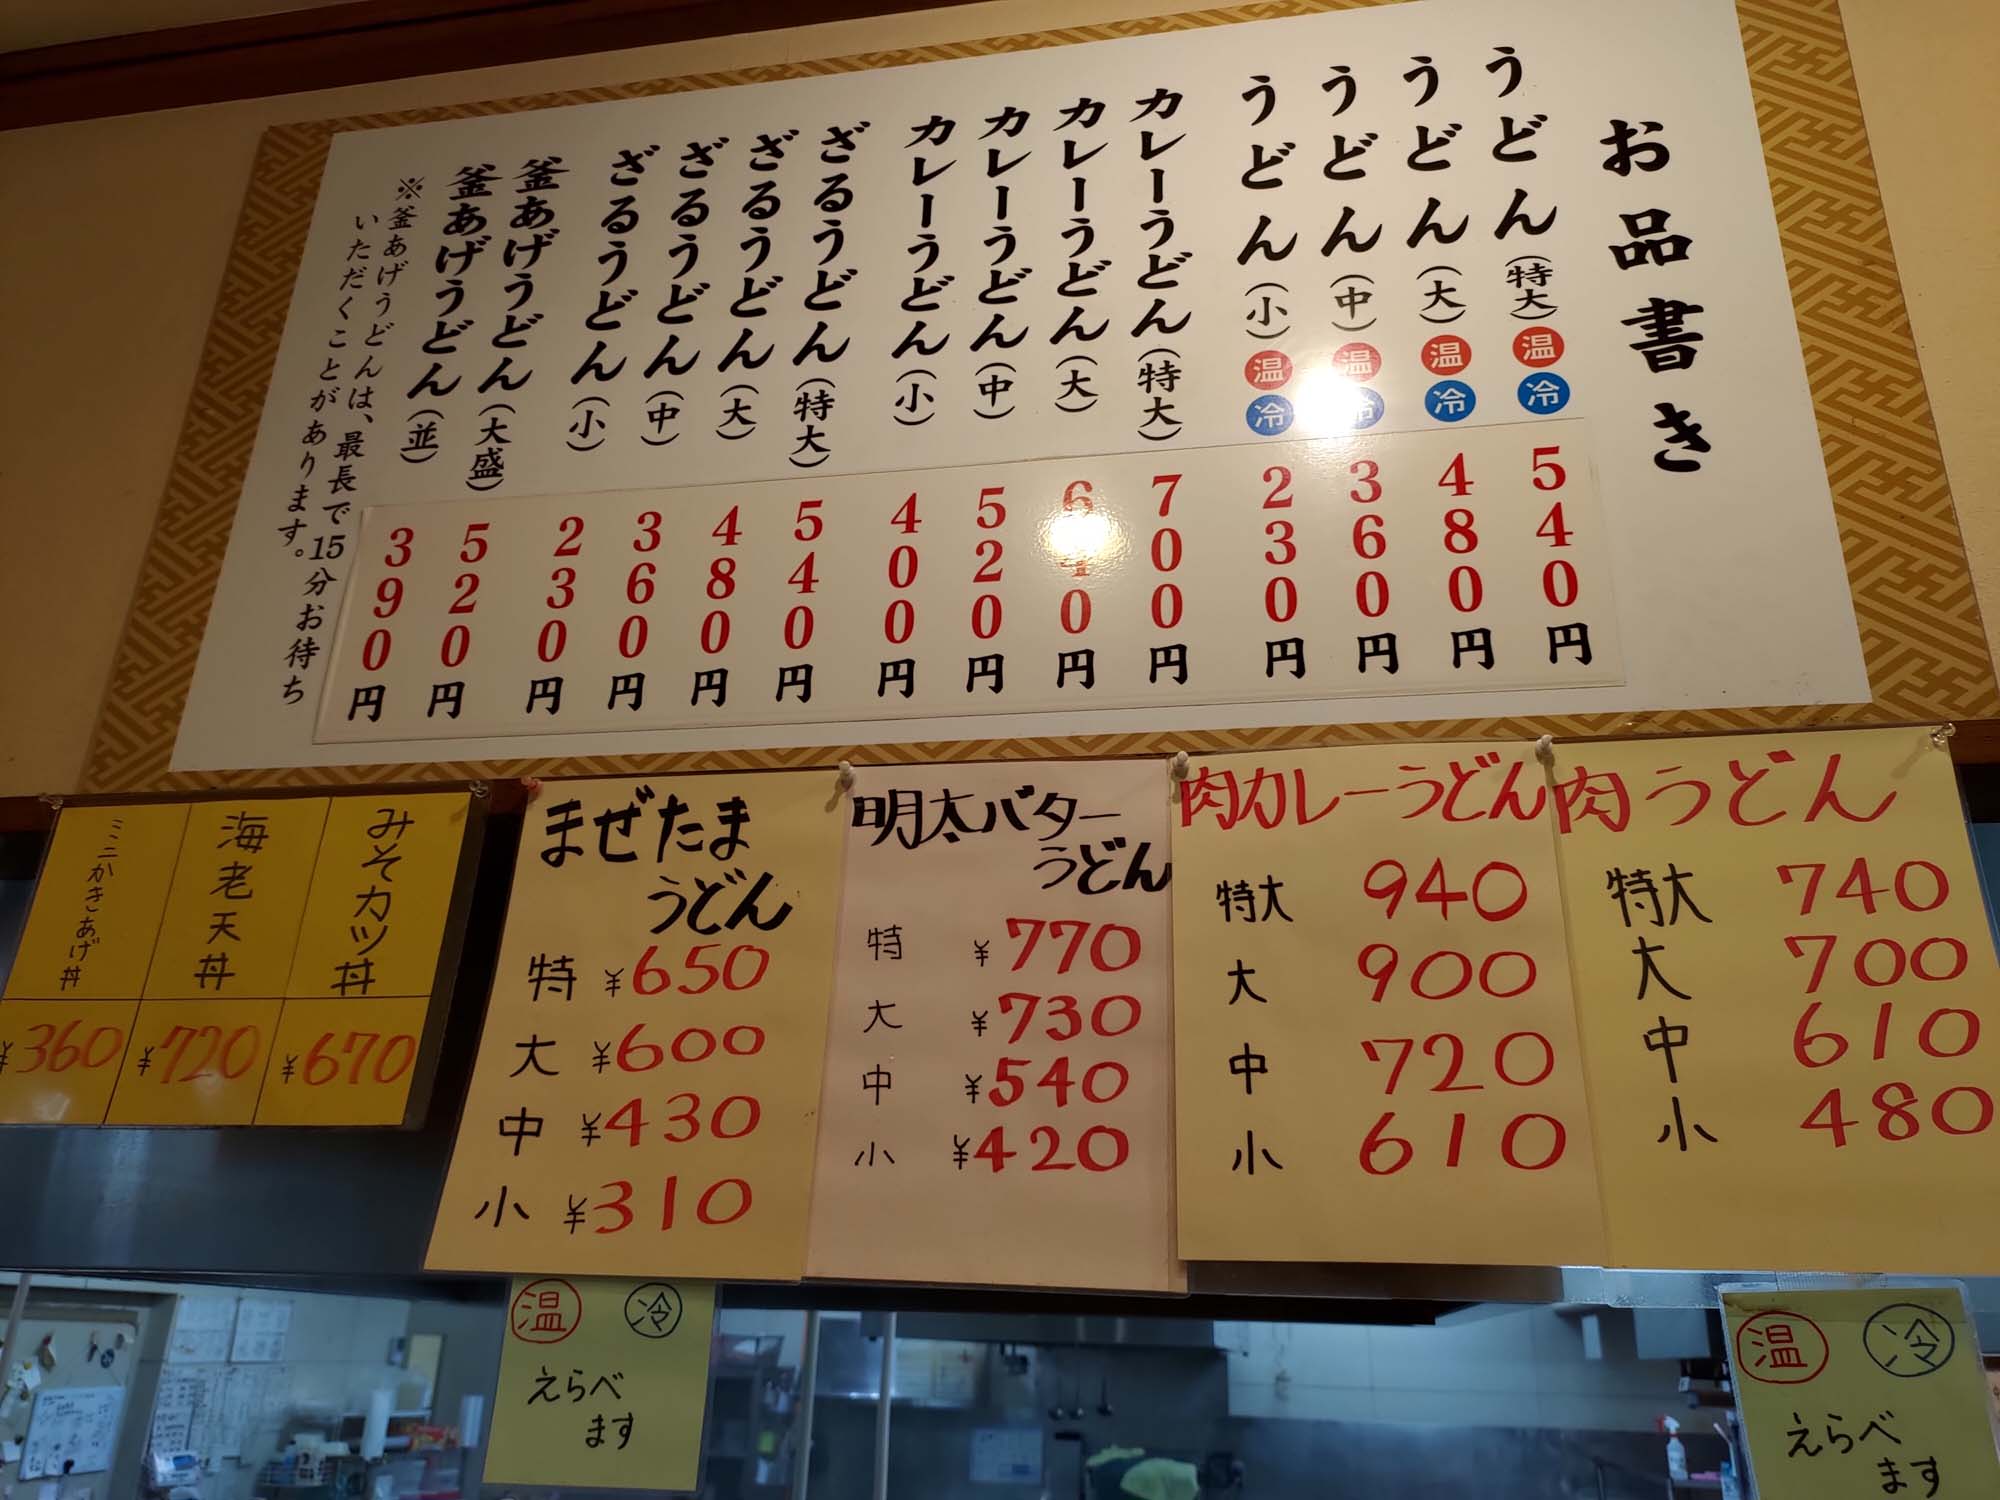 お品書き
うどん(特大)温冷 540円
うどん(大)温冷 480円
うどん(中)温冷 360円
うどん(小)温冷 230円
カレーうどん(特大) 700円
カレーうどん(大) 640円
カレーうどん(中) 520円
カレーうどん(小) 400円
ざるうどん(特大) 540円
ざるうどん(大) 480円
ざるうどん(中) 360円
ざるうどん(小) 230円
釜あげうどん(大盛) 520円
釜あげうどん(並) 390円
※釜あげうどんは、最長で15分お待ち
いただくことがあります。
肉うどん
特大 740
大 700
中 610
小 480
肉カレーうどん
特大 940
大 900
中 720
小 610
明太バター
うどん
特 ¥770
大 ¥730
中 ¥540
小 ¥420
まぜたま
うどん
特 ¥650
大 ¥600
中 ¥430
小 ¥310
みそカツ丼 ¥670
海老天丼 ¥720
ミニかきあげ丼 ¥360
温 冷
えらべ
ます
温 冷
えらべ
ます